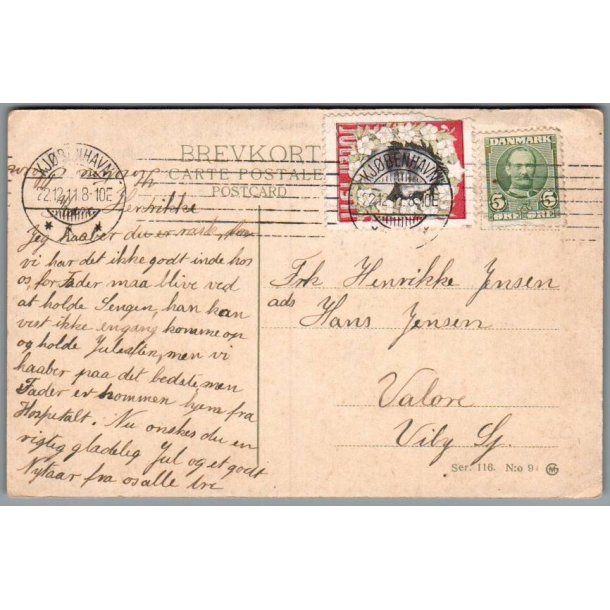 BREVKORT
CARTE POSTALE
POSTCARD
KJØBENHAVN
22.12.11.8-10E
KJØBENHAVN
22.12.11.8-10E
JULEN
DANMARK
5 5
ØRE ØRE
Henrikke
Jeg haaber du er rask, for
vi har det ikke godt inde hos
os, for Fader maa blive ved
at holde Sengen, han kan
vist ikke engang komme op
og holde Juleaften, men vi
haaber paa det bedste, men
Fader er kommen hjem fra
Hospetalt. Nu ønskes du en
rigtig gladelig Jul og et godt
Nytaar fra os alle tre
Frk Henrikke Jensen
ads Hans Jensen
Valore
Viby Sj.
Ser. 116. N:o 9